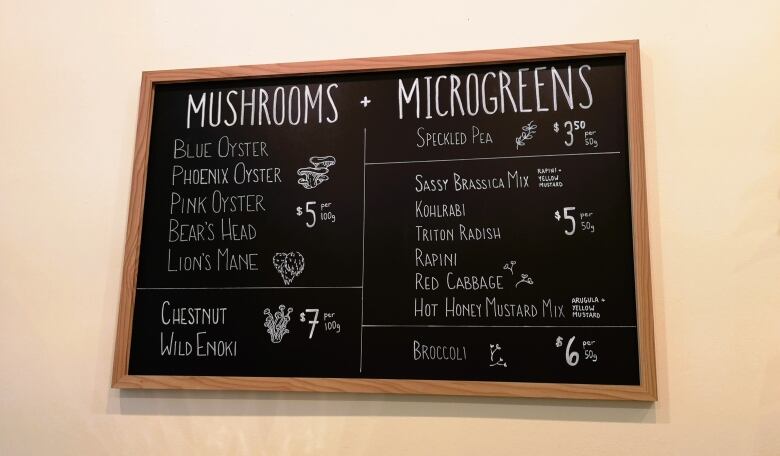 MUSHROOMS + MICROGREENS
BLUE OYSTER
PHOENIX OYSTER
PINK OYSTER
BEAR'S HEAD
LION'S MANE
$5 per 100g
CHESTNUT
WILD ENOKI
$7 per 100g
SPECKLED PEA
$3.50 per 50g
SASSY BRASSICA MIX
RAPINI +
YELLOW
MUSTARD
KOHLRABI
TRITON RADISH
RAPINI
RED CABBAGE
HOT HONEY MUSTARD MIX
ARUGULA +
YELLOW
MUSTARD
$5 per 50g
BROCCOLI
$6 per 50g